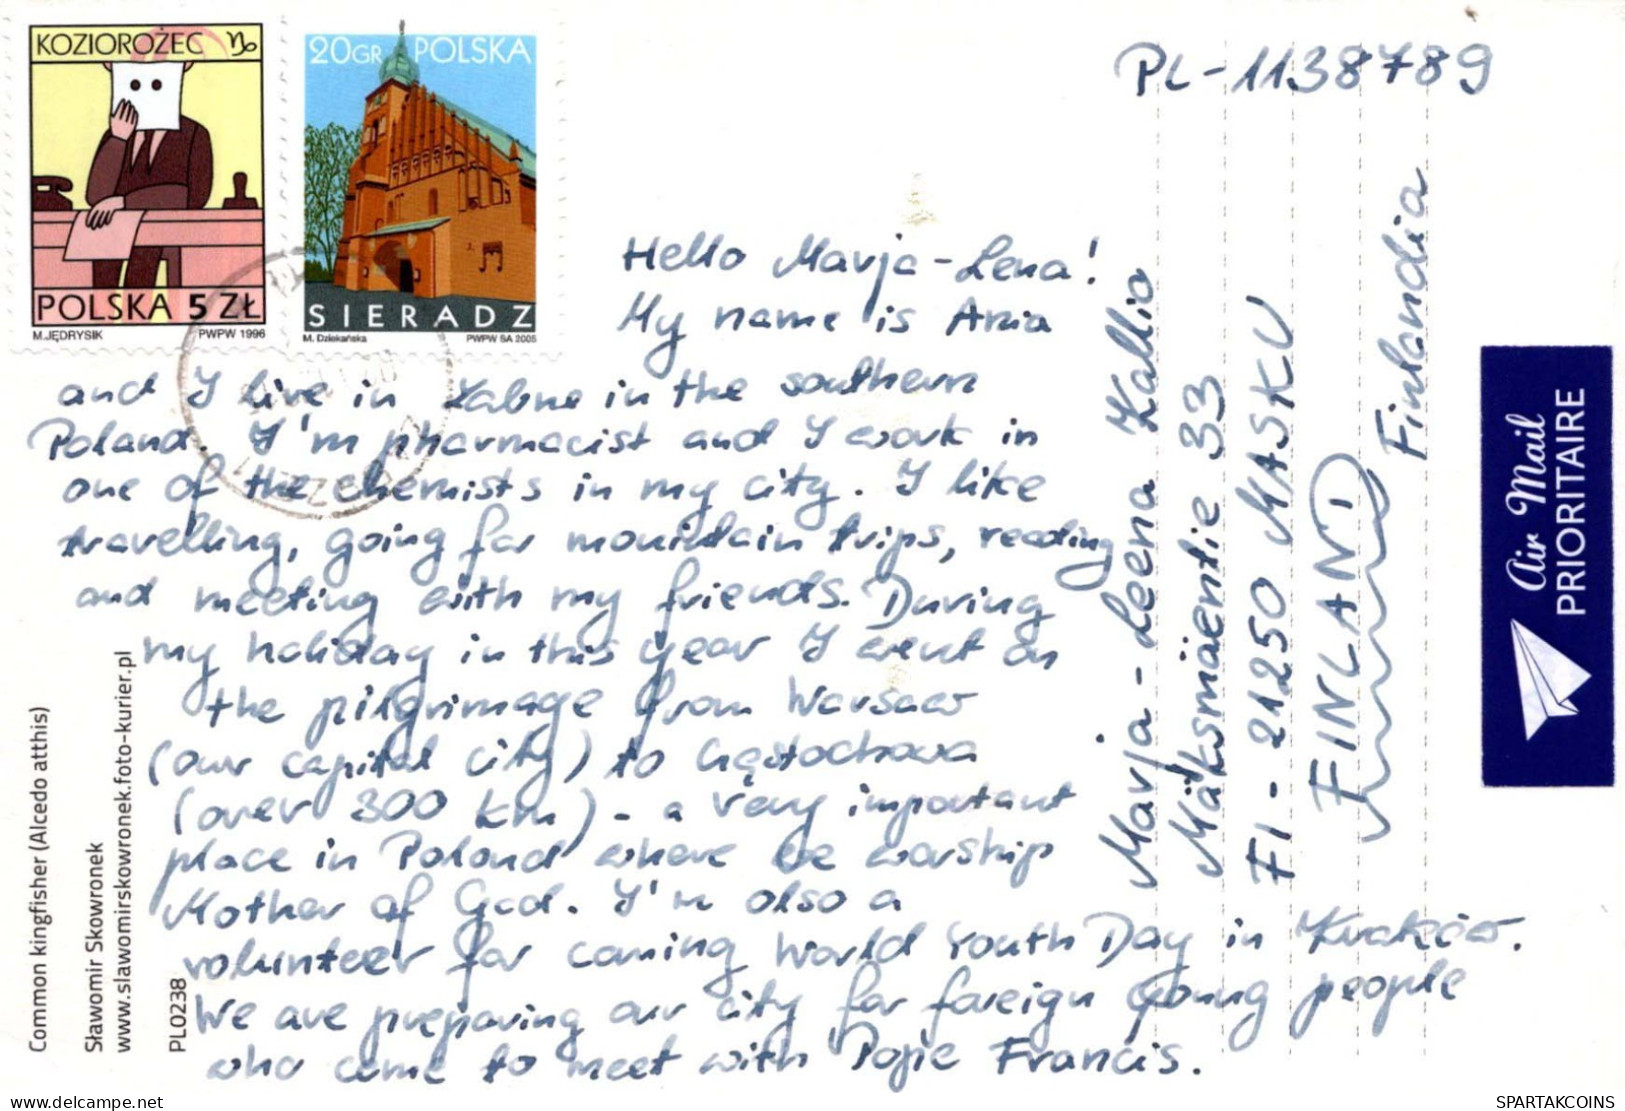 KOZIOROŻEC
POLSKA 5 ZŁ
M.JĘDRYSIK PWPW 1996
20GR POLSKA
SIERADZ
M. Dziekańska PWPW SA 2005
PL-1138789
Hello Marja-Lena!
My name is Ania
and I live in in the southern
Poland. I'm pharmacist and I work in
one of the chemists in my city. I like
travelling, going for mountain trips, reading
and meeting with my friends. During
my holiday in this year I went on
the pilgrimage from Warsaw
(our capital city) to Częstochowa
(over 300 km) - a very important
place in Poland where we worship
Mother of God. I'm also a
volunteer for coming World Youth Day in Kraków.
We are preparing our city for foreign young people
who come to meet with Pope Francis.
Marja-Leena Kallio
Maksmäentie 33
FI-21250 MASKU
FINLAND
Finlandia
Air Mail
PRIORITAIRE
Common kingfisher (Alcedo atthis)
Sławomir Skowronek
www.slawomirskowronek.foto-kurier.pl
PL0238
SPARTAKCOINS